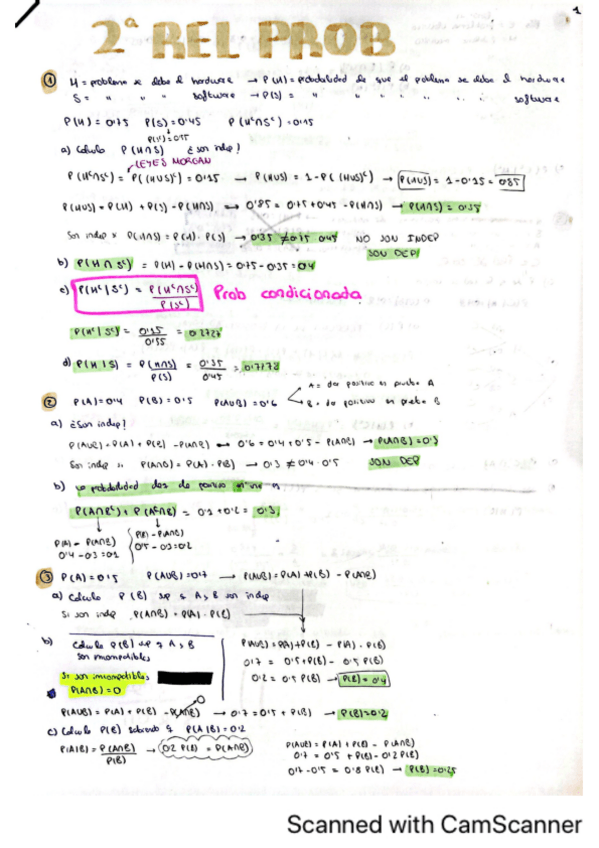 1
2ª REL PROB
① H = problema se debe al hardware → P(H) = probabilidad de que el problema se debe al hardware
S = " " " " software → P(S) = " " " " " " software
P(H) = 0'75 P(S) = 0'45 P(Hᶜ∩Sᶜ) = 0'15
a) Calcula P(H∩S) ¿son indep?
LEYES MORGAN
P(Hᶜ∩Sᶜ) = P((H∪S)ᶜ) = 0'15 → P(H∪S) = 1 - P((H∪S)ᶜ) → P(H∪S) = 1 - 0'15 = 0'85
P(H∪S) = P(H) + P(S) - P(H∩S) → 0'85 = 0'75 + 0'45 - P(H∩S) → P(H∩S) = 0'35
Son indep P(H∩S) = P(H) · P(S) → 0'35 ≠ 0'75 · 0'45 NO SON INDEP
SON DEP
b) P(H∩Sᶜ) = P(H) - P(H∩S) = 0'75 - 0'35 = 0'4
c) P(Hᶜ|Sᶜ) = P(Hᶜ∩Sᶜ) / P(Sᶜ) Prob condicionada
P(Hᶜ|Sᶜ) = 0'15 / 0'55 = 0'2727
d) P(H|S) = P(H∩S) / P(S) = 0'35 / 0'45 = 0'7778
② P(A) = 0'4 P(B) = 0'5 P(A∪B) = 0'6
A = dar positivo en prueba A
B = dar positivo en prueba B
a) ¿Son indep?
P(A∪B) = P(A) + P(B) - P(A∩B) → 0'6 = 0'4 + 0'5 - P(A∩B) → P(A∩B) = 0'3
Son indep P(A∩B) = P(A) · P(B) → 0'3 ≠ 0'4 · 0'5 SON DEP
b) probabilidad de positivo
P(A∩Bᶜ) + P(Aᶜ∩B) = 0'1 + 0'2 = 0'3
P(A) - P(A∩B)
0'4 - 0'3 = 0'1
P(B) - P(A∩B)
0'5 - 0'3 = 0'2
③ P(A) = 0'5 P(A∪B) = 0'7 → P(A∪B) = P(A) + P(B) - P(A∩B)
a) Calcula P(B) sup q A, B son indep
Si son indep P(A∩B) = P(A) · P(B)
P(A∪B) = P(A) + P(B) - P(A) · P(B)
0'7 = 0'5 + P(B) - 0'5 P(B)
0'2 = 0'5 P(B) → P(B) = 0'4
b) Calcula P(B) sup q A, B
son incompatibles
Si son incompatibles
P(A∩B) = 0
P(A∪B) = P(A) + P(B) - P(A∩B) → 0'7 = 0'5 + P(B) → P(B) = 0'2
0
c) Calcula P(B) sabiendo q P(A|B) = 0'2
P(A|B) = P(A∩B) / P(B) → 0'2 P(B) = P(A∩B)
P(A∪B) = P(A) + P(B) - P(A∩B)
0'7 = 0'5 + P(B) - 0'2 P(B)
0'7 - 0'5 = 0'8 P(B) → P(B) = 0'25
Scanned with CamScanner